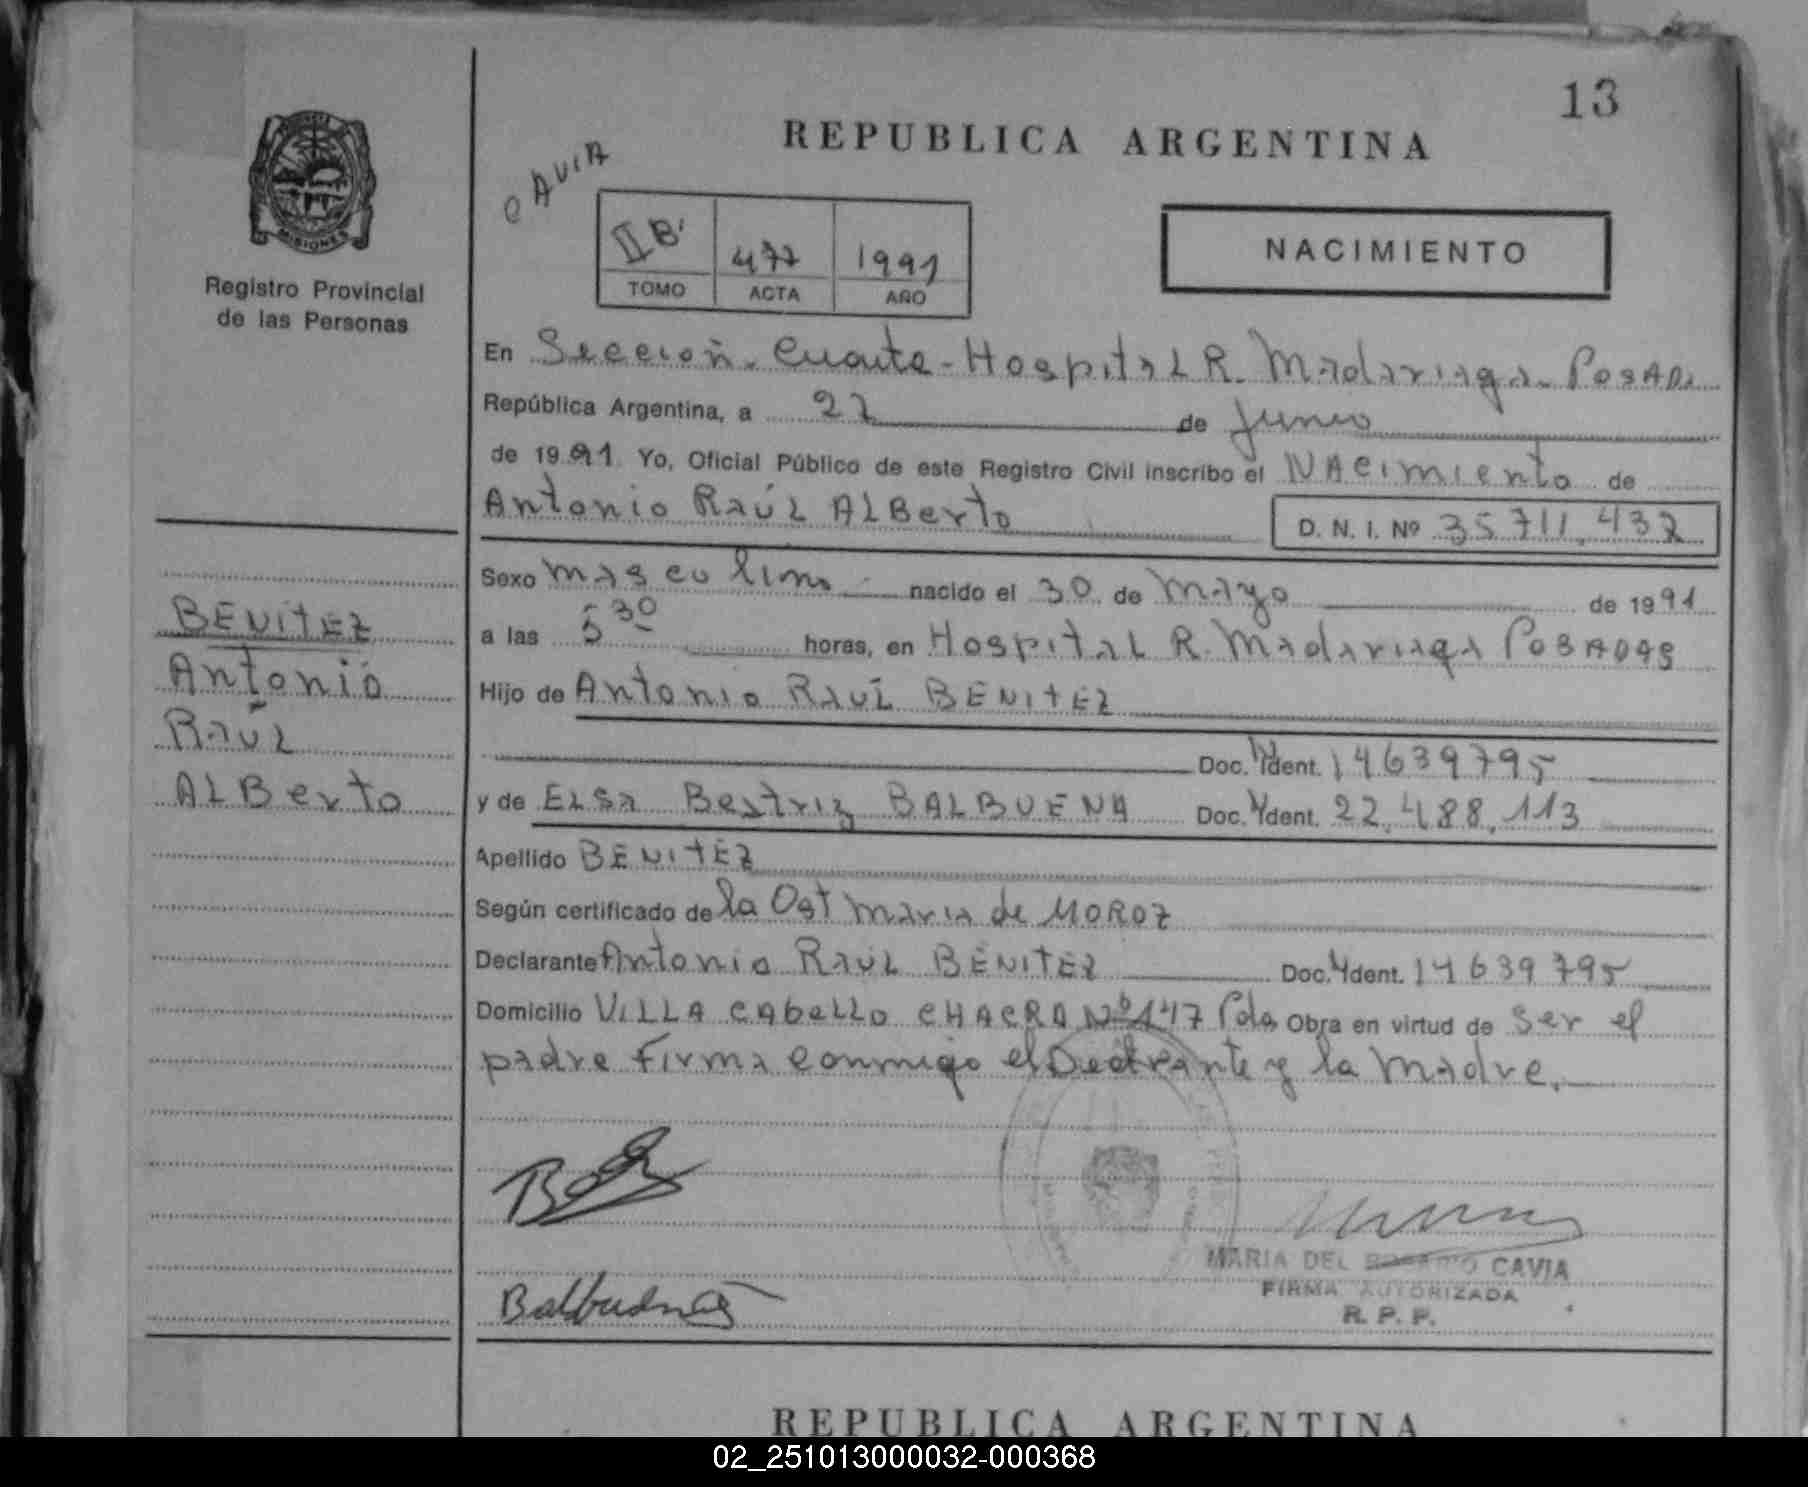 13
REPUBLICA ARGENTINA
CAVIA
MISIONES
Registro Provincial
de las Personas
II B' 477 1991
TOMO ACTA AÑO
NACIMIENTO
En Sección Cuarta - Hospital R. Madariaga - Posadas
República Argentina, a 27 de Junio
de 1991 Yo, Oficial Público de este Registro Civil inscribo el NAcimiento de
Antonio Raúl ALBerto D. N. I. Nº 35711.432
Sexo masculino nacido el 30 de Mayo de 1991
a las 5 30 horas, en Hospital R. Madariaga Posadas
Hijo de Antonio Raúl BENITEZ
Doc. Ydent. 14639795
y de ELSA Beatriz BALBUENA Doc. Ydent. 22.488.113
Apellido BENITEZ
Según certificado de la Ost Maria de MOROZ
Declarante Antonio Raúl BENITEZ Doc. Ydent. 14639795
Domicilio VILLA CAbeLLO CHACRA Nº 147 Pdas Obra en virtud de ser el
padre Firma conmigo el Declarante y la Madre.
BENITEZ
Antonio
Raúl
ALBerto
Balbuena
MARIA DEL ROSARIO CAVIA
FIRMA AUTORIZADA
R. P. P.
REPUBLICA ARGENTINA
02_251013000032-000368